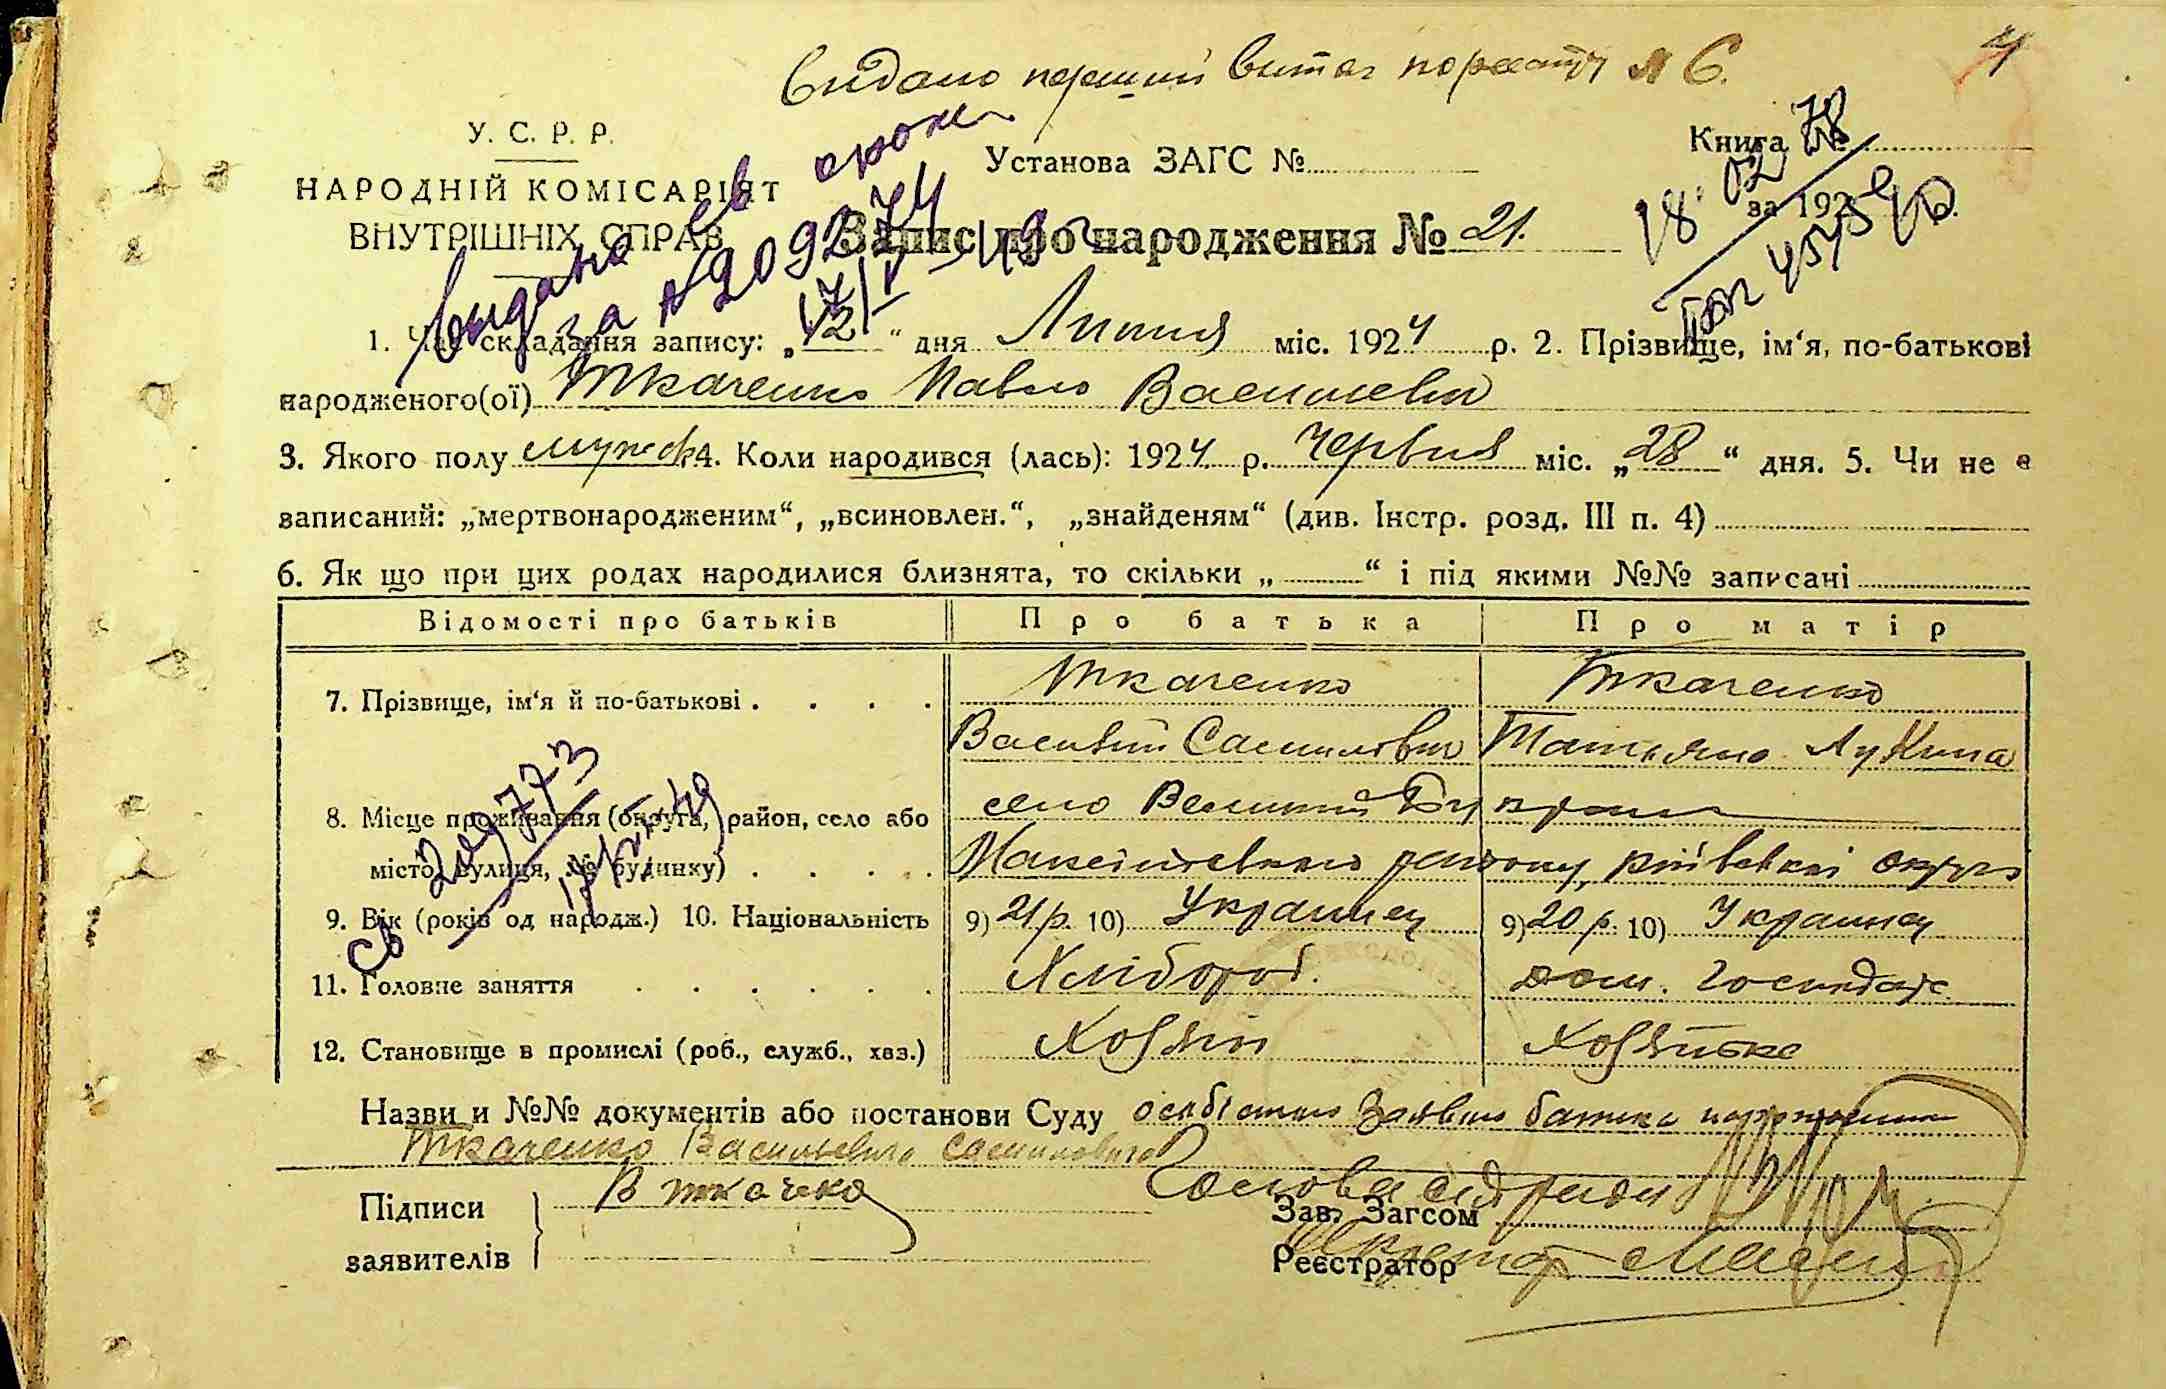 Видано перший витяг по реєстру № 6.
У. С. Р. Р.
НАРОДНІЙ КОМІСАРІЯТ
ВНУТРІШНІХ СПРАВ
Установа ЗАГС №
Книга №
за 192
Видано св
за № 209274
Запис про народження № 21.
1. Час складання запису: „12“ дня Липня міс. 1924 р. 2. Прізвище, ім‘я, по-батькові
народженого(ої) Ткаченко Павло Васильевич
3. Якого полу мужск. 4. Коли народився (лась): 1924 р. Червня міс. „28“ дня. 5. Чи не є
записаний: „мертвонародженим“, „всиновлен.“, „знайденям“ (див. Інстр. розд. III п. 4)
6. Як що при цих родах народилися близнята, то скільки „ “ і під якими №№ записані
Відомості про батьків Про батька Про матір
7. Прізвище, ім‘я й по-батькові Ткаченко Ткаченко
Василий Самилович Татьяна Лукина
8. Місце проживання (округа, район, село або село Великий Букрин
місто, вулиця, № будинку) району, Київської округи
9. Вік (років од народж.) 10. Національність 9) 21 р. 10) Украинец 9) 20 р. 10) Украинец
11. Головне заняття Хлібороб. дом. господарс.
12. Становище в промислі (роб., служб., хаз.) Хозяін Хозяйка
Назви и №№ документів або постанови Суду особистая Заявка батька
Ткаченко Васильевича Самиловича
Підписи В Ткачко Голова сідради
Зав. Загсом
заявителів Реєстратор Секретар